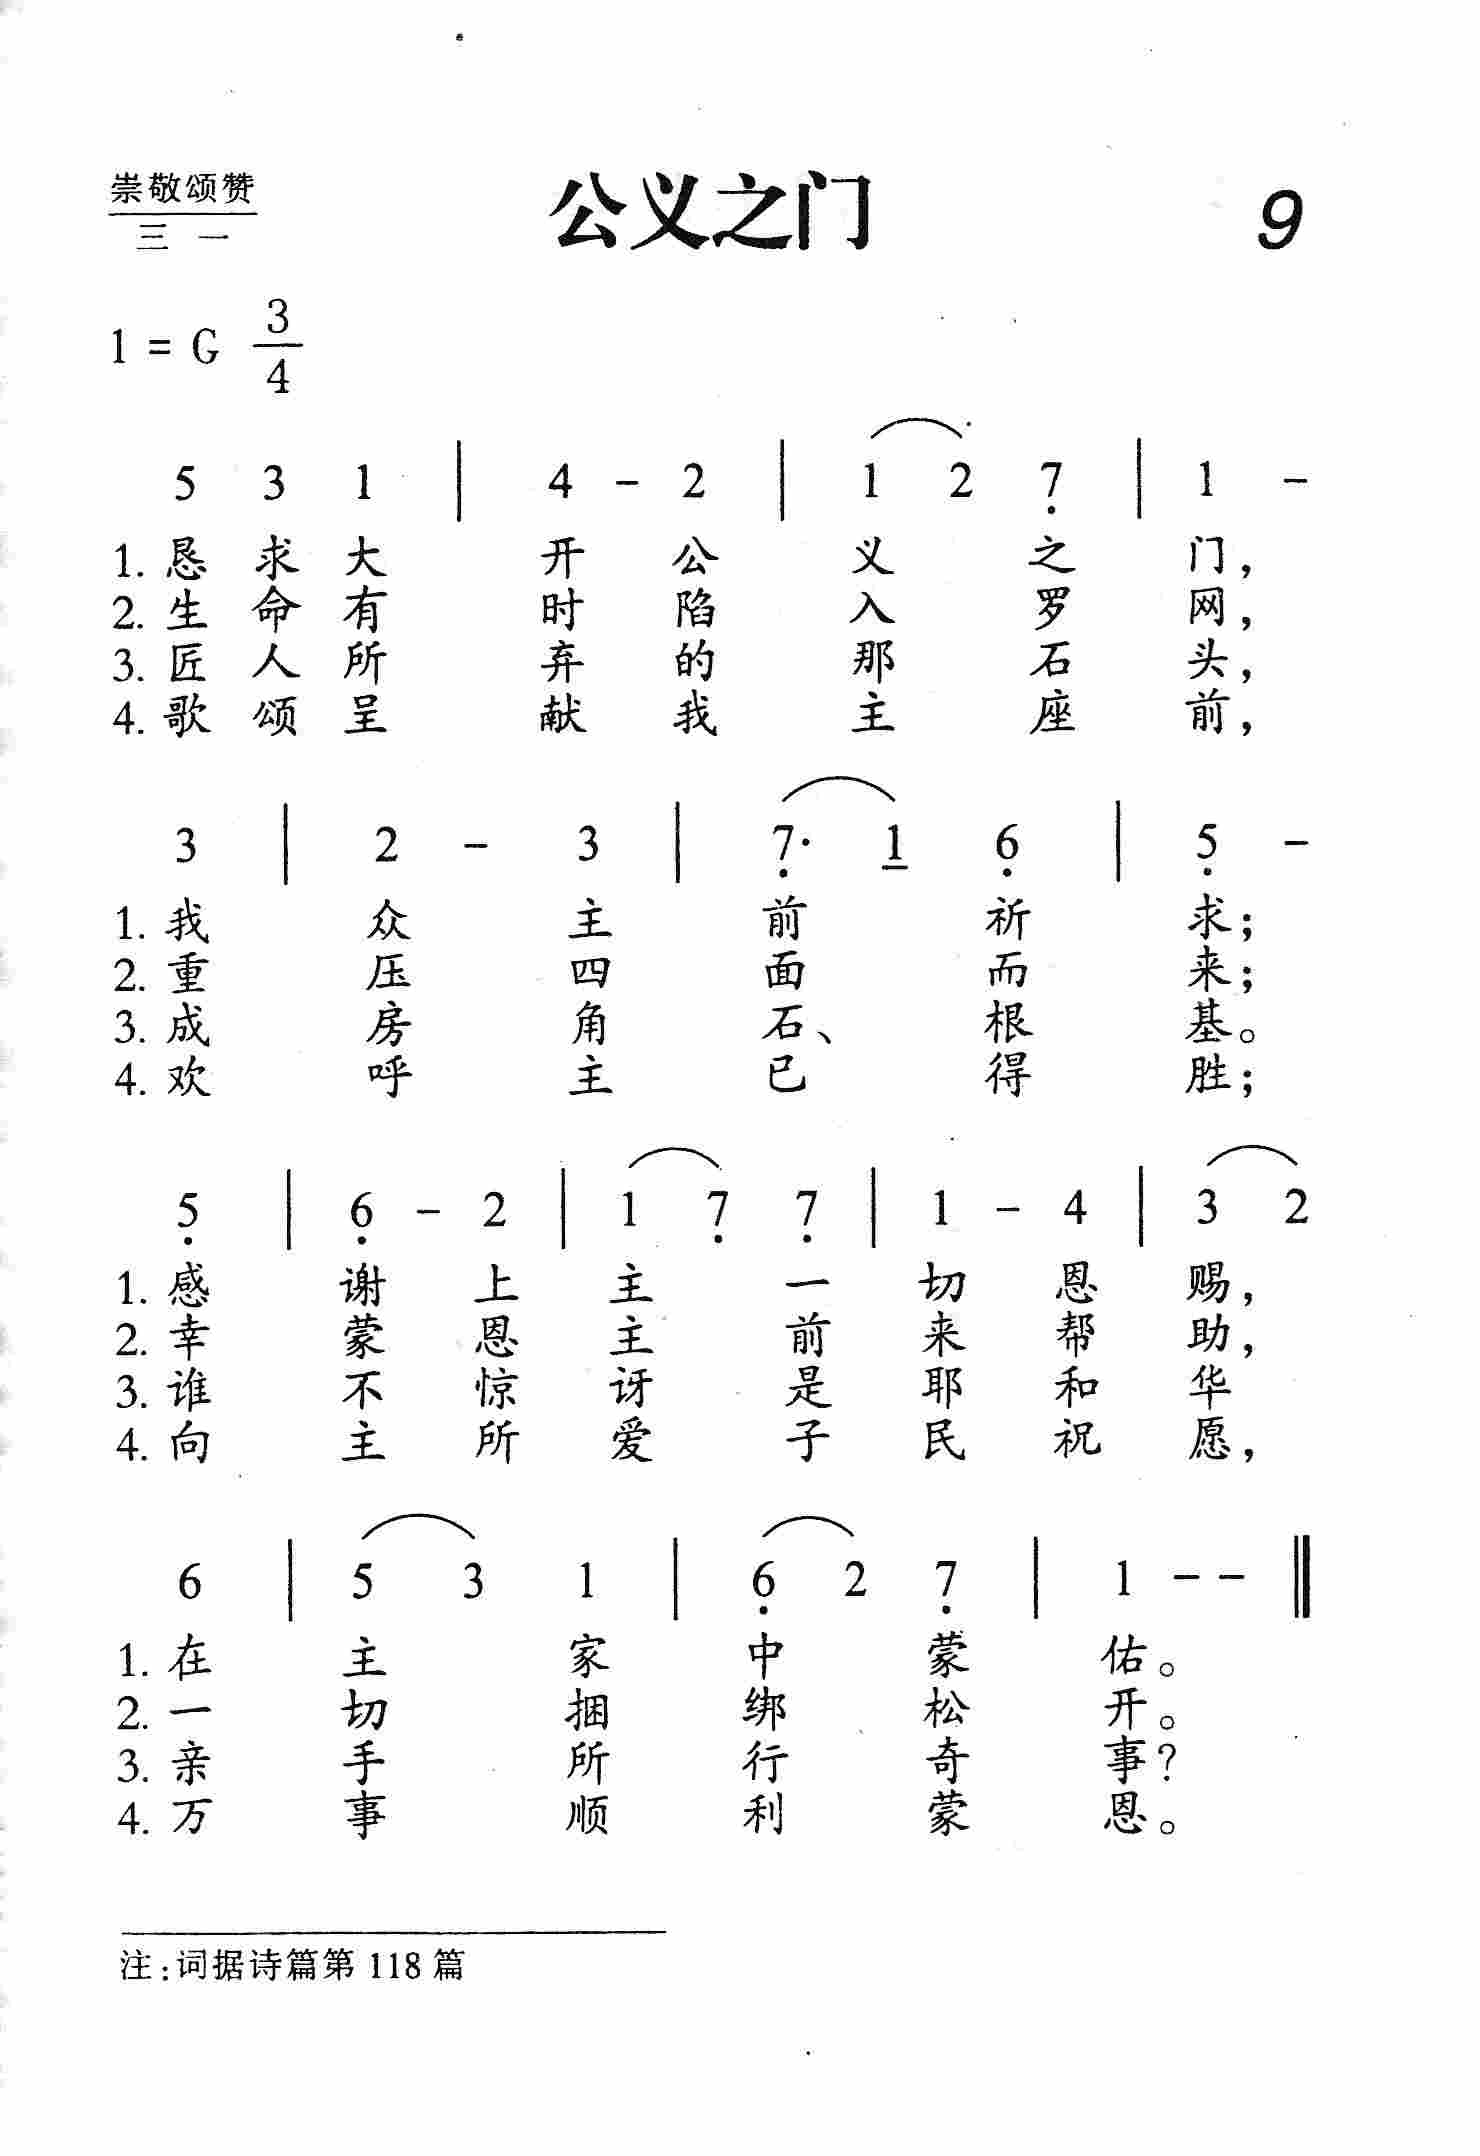 崇敬颂赞
三一
公义之门
9
1 = G 3/4
5 3 1 | 4 - 2 | 1 2 7 | 1 -
1. 恳求大开公义之门，
2. 生命有时陷入罗网，
3. 匠人所弃的那石头，
4. 歌颂呈献我主座前，
3 | 2 - 3 | 7· 1 6 | 5 -
1. 我众主前祈求；
2. 重压四面而来；
3. 成房角石、根基。
4. 欢呼主已得胜；
5 | 6 - 2 | 1 7 7 | 1 - 4 | 3 2
1. 感谢上主一切恩赐，
2. 幸蒙恩主前来帮助，
3. 谁不惊讶是耶和华
4. 向主所爱子民祝愿，
6 | 5 3 1 | 6 2 7 | 1 - - ‖
1. 在主家中蒙佑。
2. 一切捆绑松开。
3. 亲手所行奇事？
4. 万事顺利蒙恩。
注：词据诗篇第 118 篇